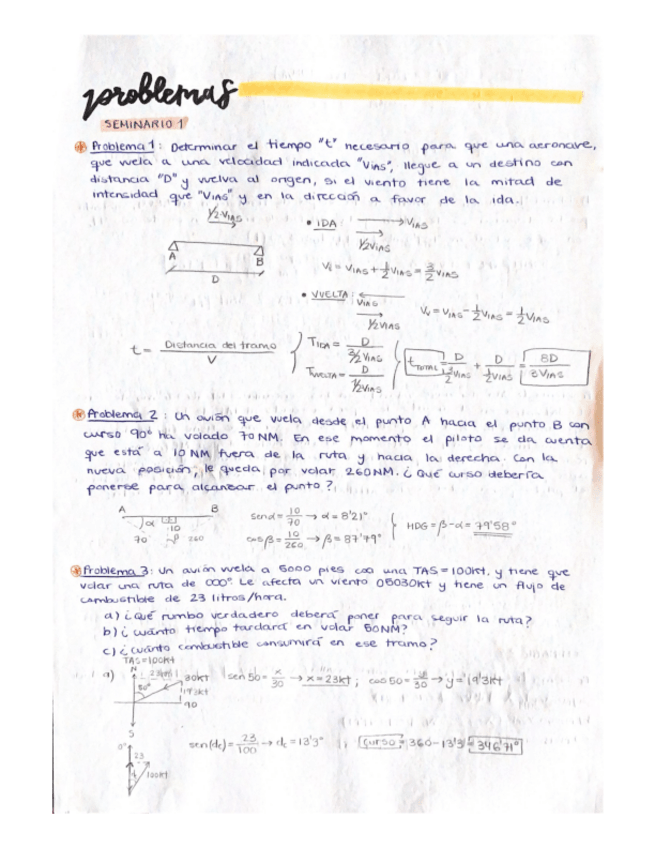 problemas
SEMINARIO 1
Problema 1: Determinar el tiempo "t" necesario para que una aeronave,
que vuela a una velocidad indicada "VIAS", llegue a un destino con
distancia "D" y vuelva al origen, si el viento tiene la mitad de
intensidad que "VIAS" y en la dirección a favor de la ida.
1/2·VIAS
A
B
D
• IDA: VIAS
1/2VIAS
Vi = VIAS + 1/2VIAS = 3/2VIAS
• VUELTA: VIAS
1/2VIAS
Vv = VIAS - 1/2VIAS = 1/2VIAS
t = Distancia del tramo / V
TIDA = D / 3/2VIAS
TVUELTA = D / 1/2VIAS
tTOTAL = D / 3/2VIAS + D / 1/2VIAS = 8D / 3VIAS
Problema 2: Un avión que vuela desde el punto A hacia el punto B con
curso 90º ha volado 70NM. En ese momento el piloto se da cuenta
que está a 10NM fuera de la ruta y hacia la derecha. Con la
nueva posición, le queda por volar 260NM. ¿Qué curso debería
ponerse para alcanzar el punto?
A
B
α
10
70
β
260
senα = 10/70 → α = 8'21º
cosβ = 10/260 → β = 87'79º
HDG = β-α = 79'58º
Problema 3: Un avión vuela a 5000 pies con una TAS = 100kt, y tiene que
volar una ruta de 000º. Le afecta un viento 05030kt y tiene un flujo de
combustible de 23 litros/hora.
a) ¿Qué rumbo verdadero deberá poner para seguir la ruta?
b) ¿cuánto tiempo tardará en volar 50NM?
c) ¿cuánto combustible consumirá en ese tramo?
TAS = 100kt
a)
N
30kt
50º
19'3kt
90
S
sen50 = x/30 → x = 23kt ; cos50 = y/30 → y = 19'3kt
0º
23
100kt
sen(dc) = 23/100 → dc = 13'3º
Curso: 360-13'3 = 346'71º